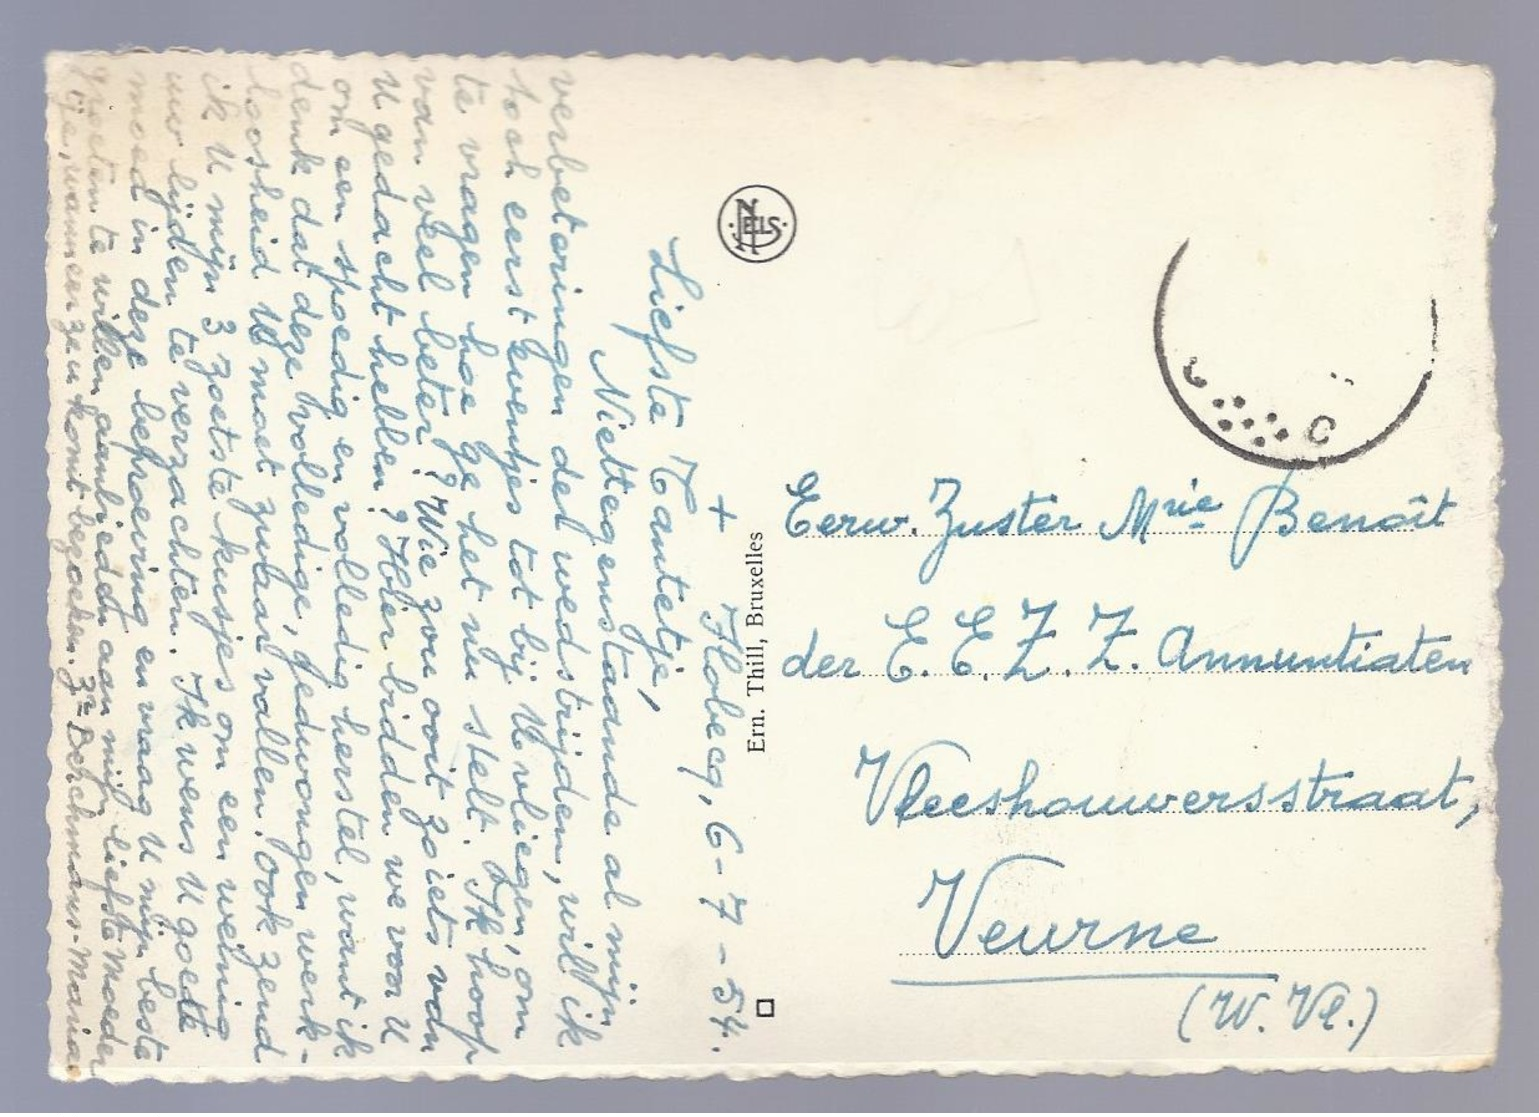 +
Flobecq, 6-7-54.
Liefste Tantetje,
Niettegenstaande al mijn
verbeteringen del wedstrijden, will ik
toch eerst eventjes tot bij U vliegen, om
te vragen hoe ge het nu stelt. Ik hoop
van veel beter! Wie zou ooit zoiets van
U gedacht hebben? Hier bidden we voor U
om een spoedig en volledig herstel, want ik
denk dat deze volledige, gedwongen werk-
loosheid U moet zwaar vallen. Ook zend
ik U mijn 3 zoetste kusjes om een weinig
uw lijden te verzachten. Ik wens U goede
moed in deze beproeving en vraag U mijn beste
groeten te willen aanbieden aan mijn liefste Moeder
wanneer ze u komt bezoeken. Zr Berchmans-Maria
NELS
Ern. Thill, Bruxelles
Eerw. Zuster Mrie Benoît
der E. E. Z. Z. Annuntiaten
Vleeshouwersstraat,
Veurne
(W. Vl.)